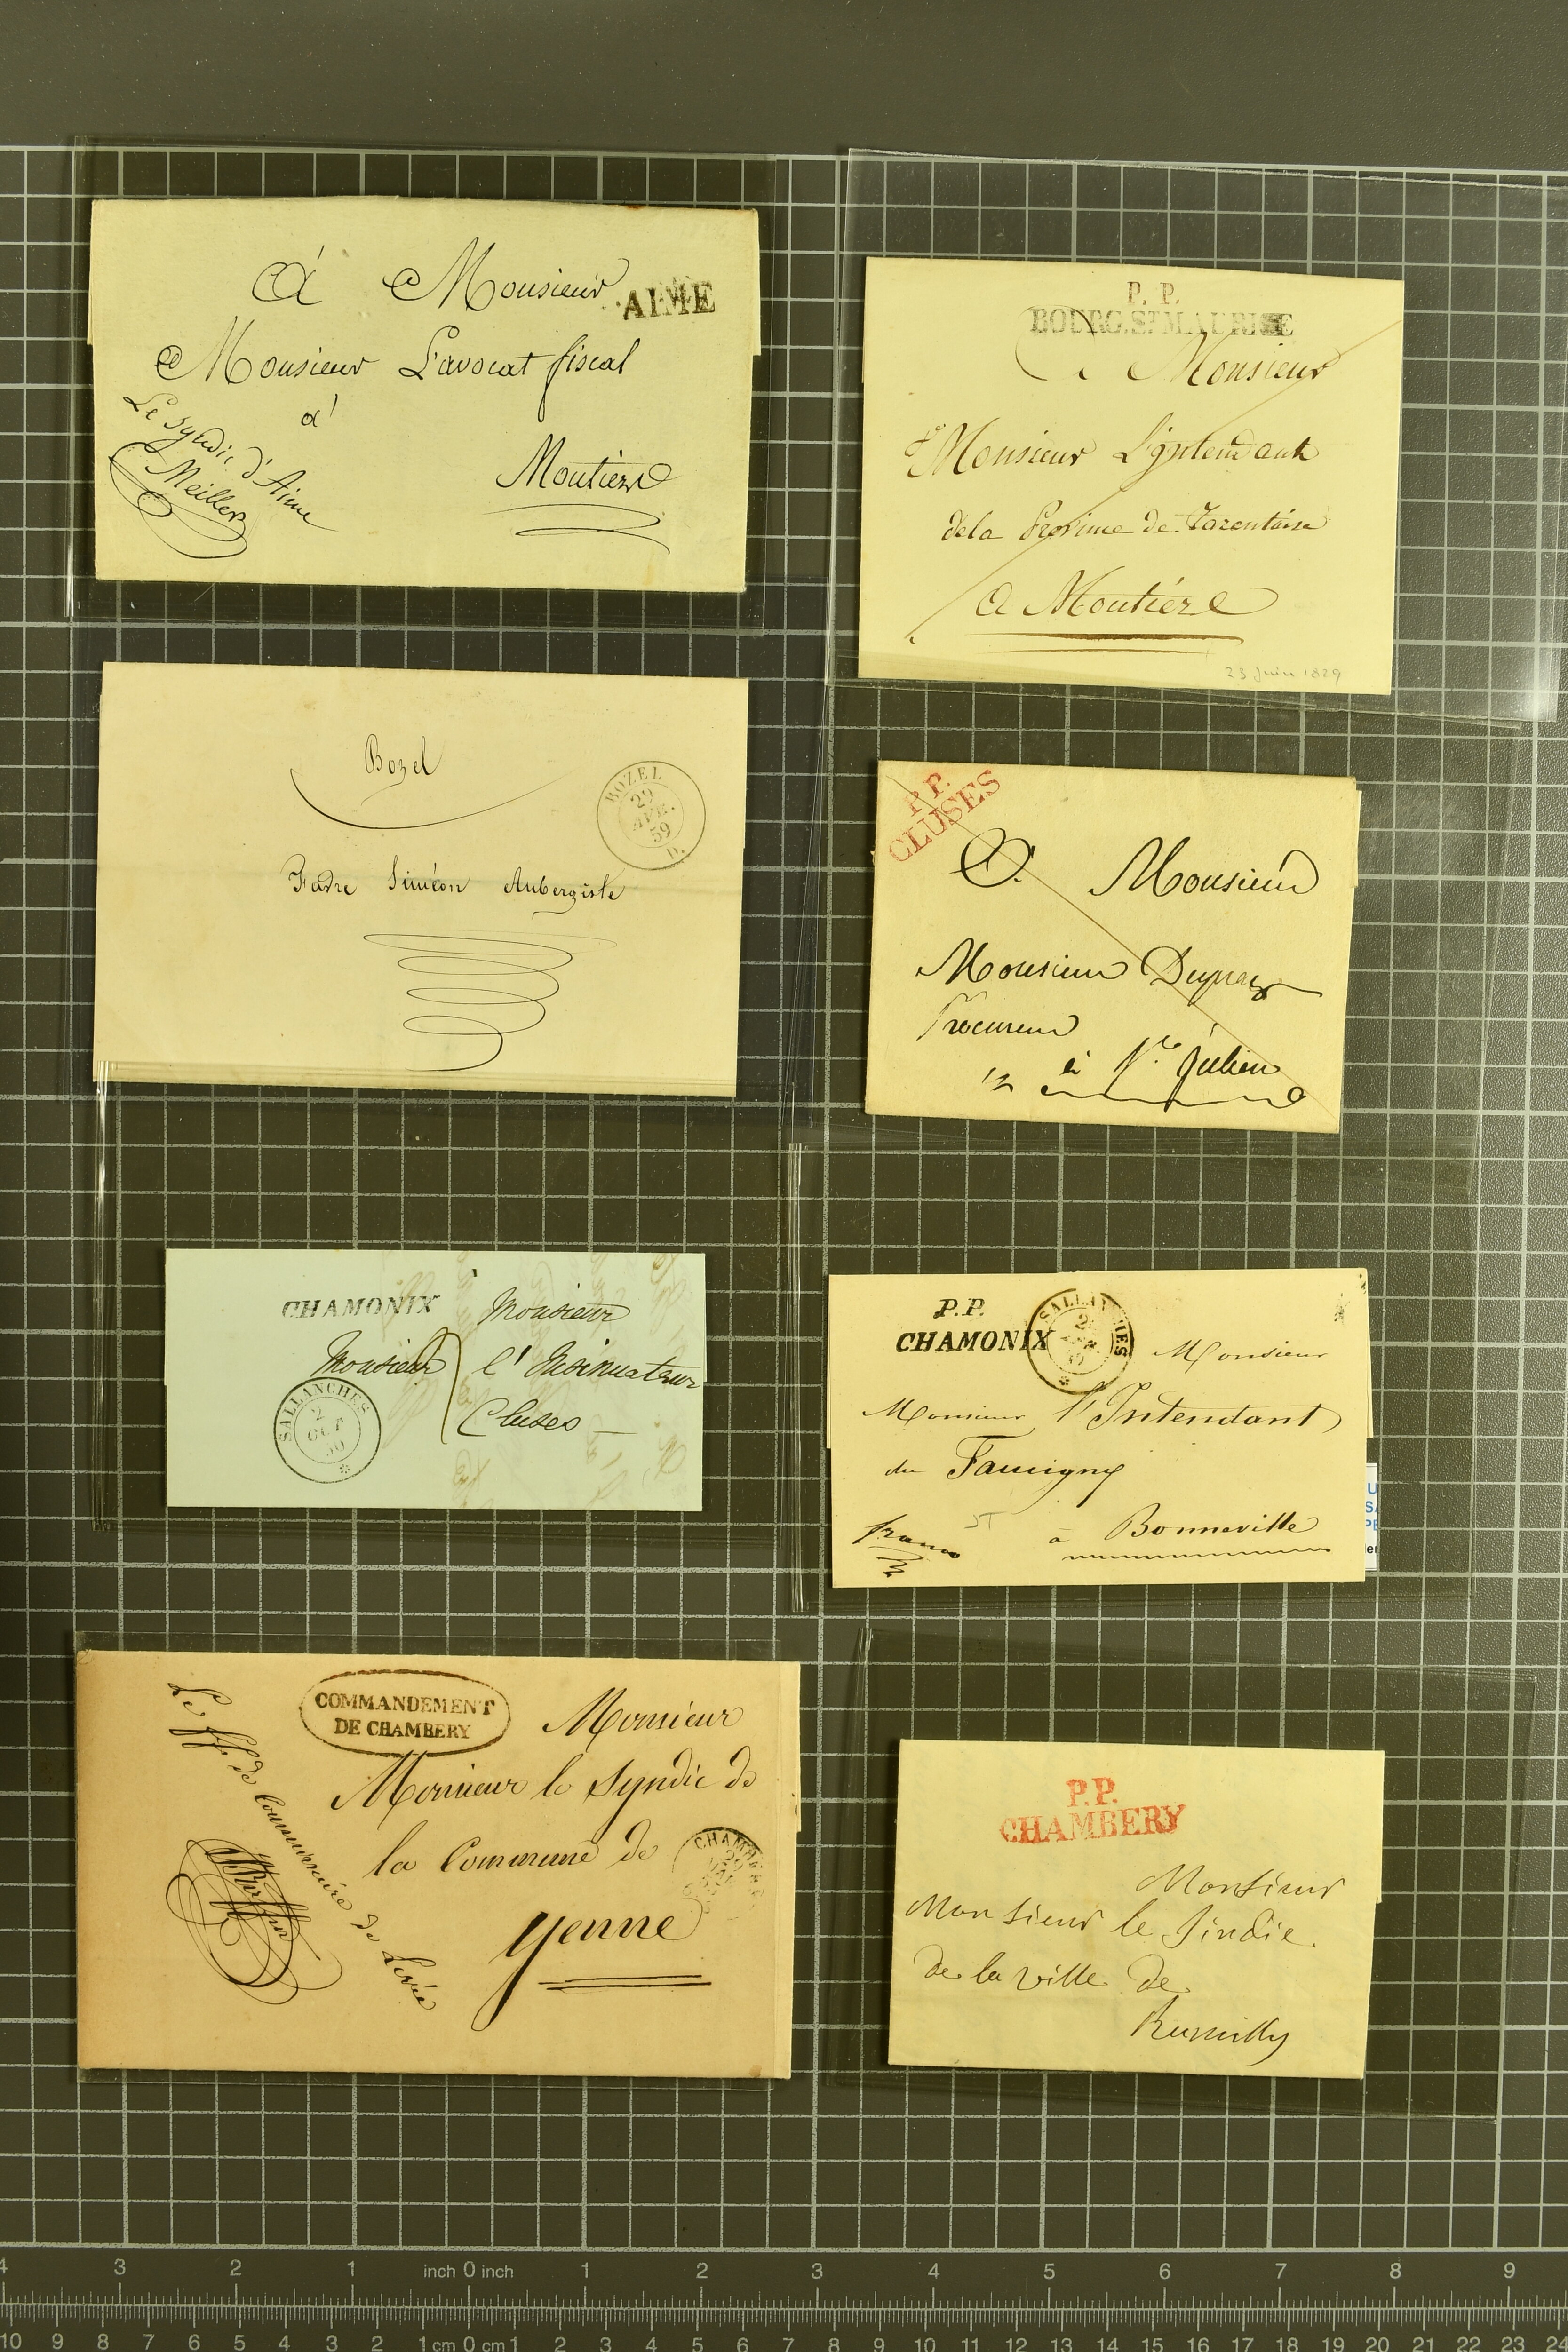 à Monsieur
AIME
Monsieur L'avocat fiscal
à
Moutiers
Le Syndic d'Aime
Meiller
P. P.
BOURG.ST MAURICE
A Monsieur
Monsieur L'intendant
de la Province de Tarentaise
A Moutiers
23 Juin 1829
Bozel
BOZEL
29
59
D.
Siméon Aubergiste
P.P.
CLUSES
A Monsieur
Monsieur Dupraz
Procureur
à St Julien
CHAMONIX
à Monsieur
Monsieur l'Insinuateur
Cluses
SALLANCHES
2
OCT
P.P.
CHAMONIX
SALLANCHES
Monsieur
Monsieur l'Intendant
du Faucigny
franco
à Bonneville
COMMANDEMENT
DE CHAMBERY
Monsieur
Monsieur le Syndic de
la Commune de
Yenne
CHAMBERY
Le ff. de Commissaire de Levée
P.P.
CHAMBERY
Monsieur
Monsieur le Sindic
de la ville de
Rumilly
4 3 2 1 inch 0 inch 1 2 3 4 5 6 7 8 9
10 9 8 7 6 5 4 3 2 1 cm 0 cm 1 2 3 4 5 6 7 8 9 10 11 12 13 14 15 16 17 18 19 20 21 22 23 24